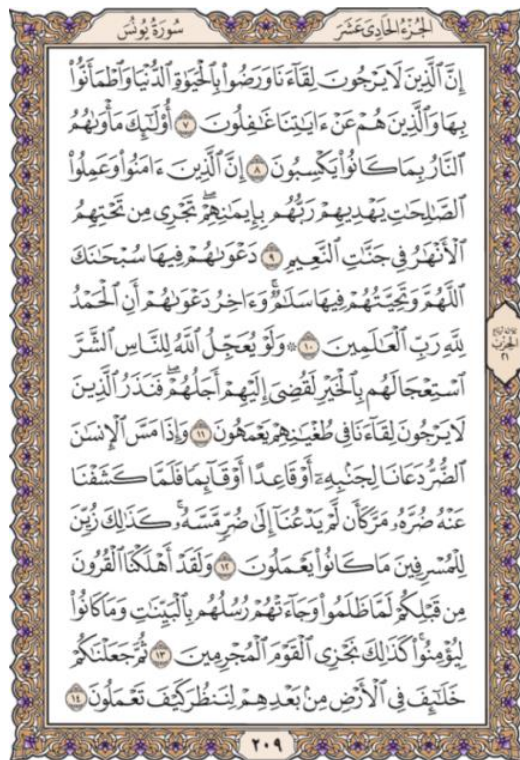 الجُزْءُ الحَادِىَ عَشَرَ
سُورَةُ يُونُسَ
إِنَّ ٱلَّذِينَ لَا يَرْجُونَ لِقَآءَنَا وَرَضُوا۟ بِٱلْحَيَوٰةِ ٱلدُّنْيَا وَٱطْمَأَنُّوا۟
بِهَا وَٱلَّذِينَ هُمْ عَنْ ءَايَٰتِنَا غَٰفِلُونَ ٧ أُو۟لَٰٓئِكَ مَأْوَىٰهُمُ
ٱلنَّارُ بِمَا كَانُوا۟ يَكْسِبُونَ ٨ إِنَّ ٱلَّذِينَ ءَامَنُوا۟ وَعَمِلُوا۟
ٱلصَّٰلِحَٰتِ يَهْدِيهِمْ رَبُّهُم بِإِيمَٰنِهِمْ ۖ تَجْرِى مِن تَحْتِهِمُ
ٱلْأَنْهَٰرُ فِى جَنَّٰتِ ٱلنَّعِيمِ ٩ دَعْوَىٰهُمْ فِيهَا سُبْحَٰنَكَ
ٱللَّهُمَّ وَتَحِيَّتُهُمْ فِيهَا سَلَٰمٌ ۚ وَءَاخِرُ دَعْوَىٰهُمْ أَنِ ٱلْحَمْدُ
لِلَّهِ رَبِّ ٱلْعَٰلَمِينَ ١٠ ۞ وَلَوْ يُعَجِّلُ ٱللَّهُ لِلنَّاسِ ٱلشَّرَّ
ٱسْتِعْجَالَهُم بِٱلْخَيْرِ لَقُضِىَ إِلَيْهِمْ أَجَلُهُمْ ۖ فَنَذَرُ ٱلَّذِينَ
لَا يَرْجُونَ لِقَآءَنَا فِى طُغْيَٰنِهِمْ يَعْمَهُونَ ١١ وَإِذَا مَسَّ ٱلْإِنسَٰنَ
ٱلضُّرُّ دَعَانَا لِجَنۢبِهِۦٓ أَوْ قَاعِدًا أَوْ قَآئِمًا فَلَمَّا كَشَفْنَا
عَنْهُ ضُرَّهُۥ مَرَّ كَأَن لَّمْ يَدْعُنَآ إِلَىٰ ضُرٍّ مَّسَّهُۥ ۚ كَذَٰلِكَ زُيِّنَ
لِلْمُسْرِفِينَ مَا كَانُوا۟ يَعْمَلُونَ ١٢ وَلَقَدْ أَهْلَكْنَا ٱلْقُرُونَ
مِن قَبْلِكُمْ لَمَّا ظَلَمُوا۟ وَجَآءَتْهُمْ رُسُلُهُم بِٱلْبَيِّنَٰتِ وَمَا كَانُوا۟
لِيُؤْمِنُوا۟ ۚ كَذَٰلِكَ نَجْزِى ٱلْقَوْمَ ٱلْمُجْرِمِينَ ١٣ ثُمَّ جَعَلْنَٰكُمْ
خَلَٰٓئِفَ فِى ٱلْأَرْضِ مِنۢ بَعْدِهِمْ لِنَنظُرَ كَيْفَ تَعْمَلُونَ ١٤
الحِزْب
٢١
٢٠٩